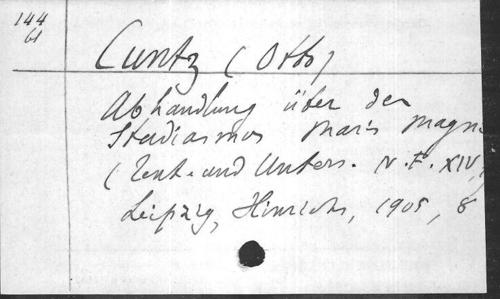 144
61
Cuntz (Otto)
Abhandlung über den
Stadiasmos Maris magn
(Text- und Unters. N.F. XIV,
Leipzig, Hinrichs, 1905, 8